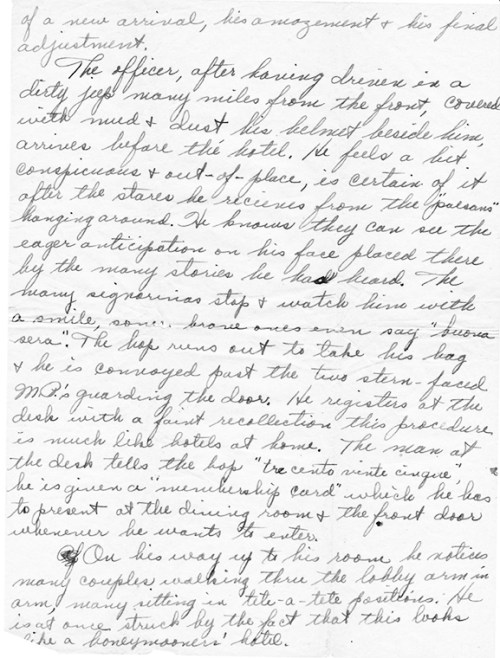 of a new arrival, his amazement & his final
adjustment.
The officer, after having driven in a
dirty jeep many miles from the front, covered
with mud & dust his helmet beside him,
arrives before the hotel. He feels a bit
conspicuous & out-of-place, is certain of it
after the stares he recieves from the "paesans"
hanging around. He knows they can see the
eager anticipation on his face placed there
by the many stories he had heard. The
many signorinas stop & watch him with
a smile, some brave ones even say "buona
sera". The bop runs out to take his bag
& he is convoyed past the two stern-faced
M.P.'s guarding the door. He registers at the
desk with a faint recollection this procedure
is much like hotels at home. The man at
the desk tells the bop "tre cento vinte cinque",
he is given a "membership card" which he has
to present at the dining room & the front door
whenever he wants to enter.
On his way up to his room he notices
many couples walking thru the lobby arm in
arm, many sitting in tete-a-tete positions. He
is at once struck by the fact that this looks
like a honeymooners' hotel.